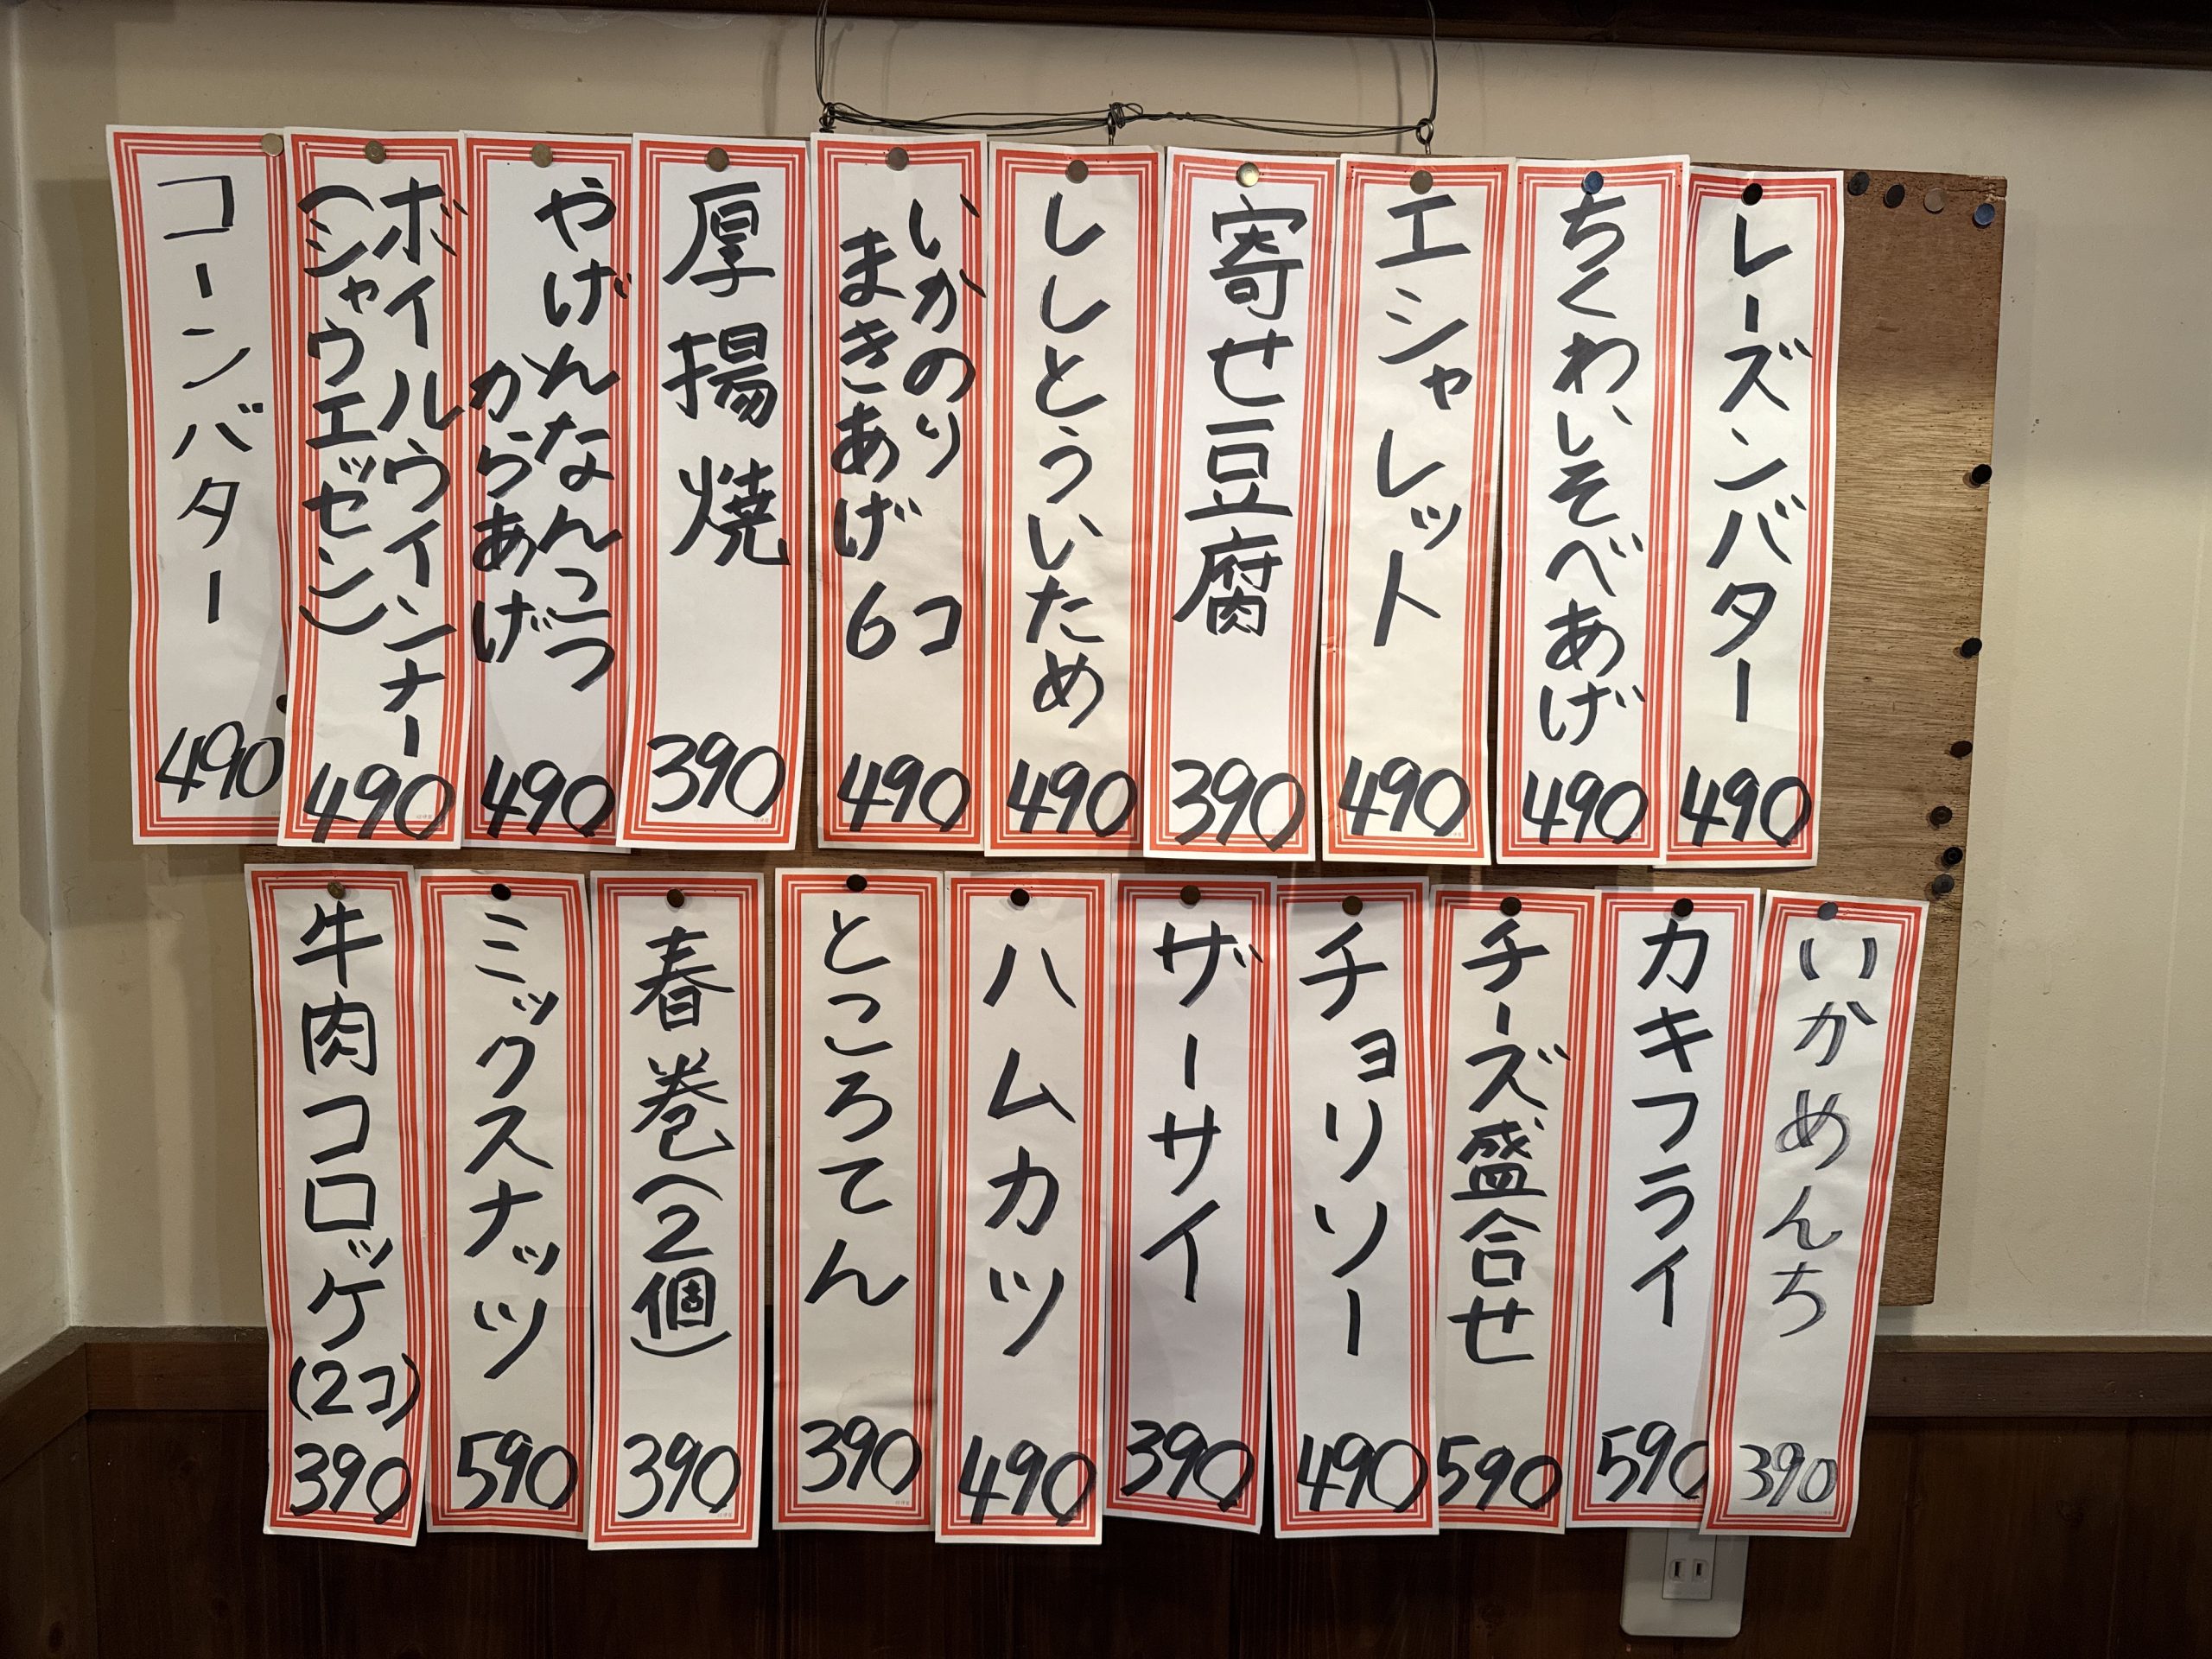 レーズンバター
490
ちくわいそべあげ
490
エシャレット
490
寄せ豆腐
390
ししとういため
490
いかのり
まきあげ
6コ
490
厚揚焼
390
やげんなんこつ
からあげ
490
ボイルウインナー
(シャウエッセン)
490
コーンバター
490
いかめんち
390
カキフライ
590
チーズ盛合せ
590
チョリソー
490
ザーサイ
390
ハムカツ
490
ところてん
390
春巻(2個)
390
ミックスナッツ
590
牛肉コロッケ
(2コ)
390